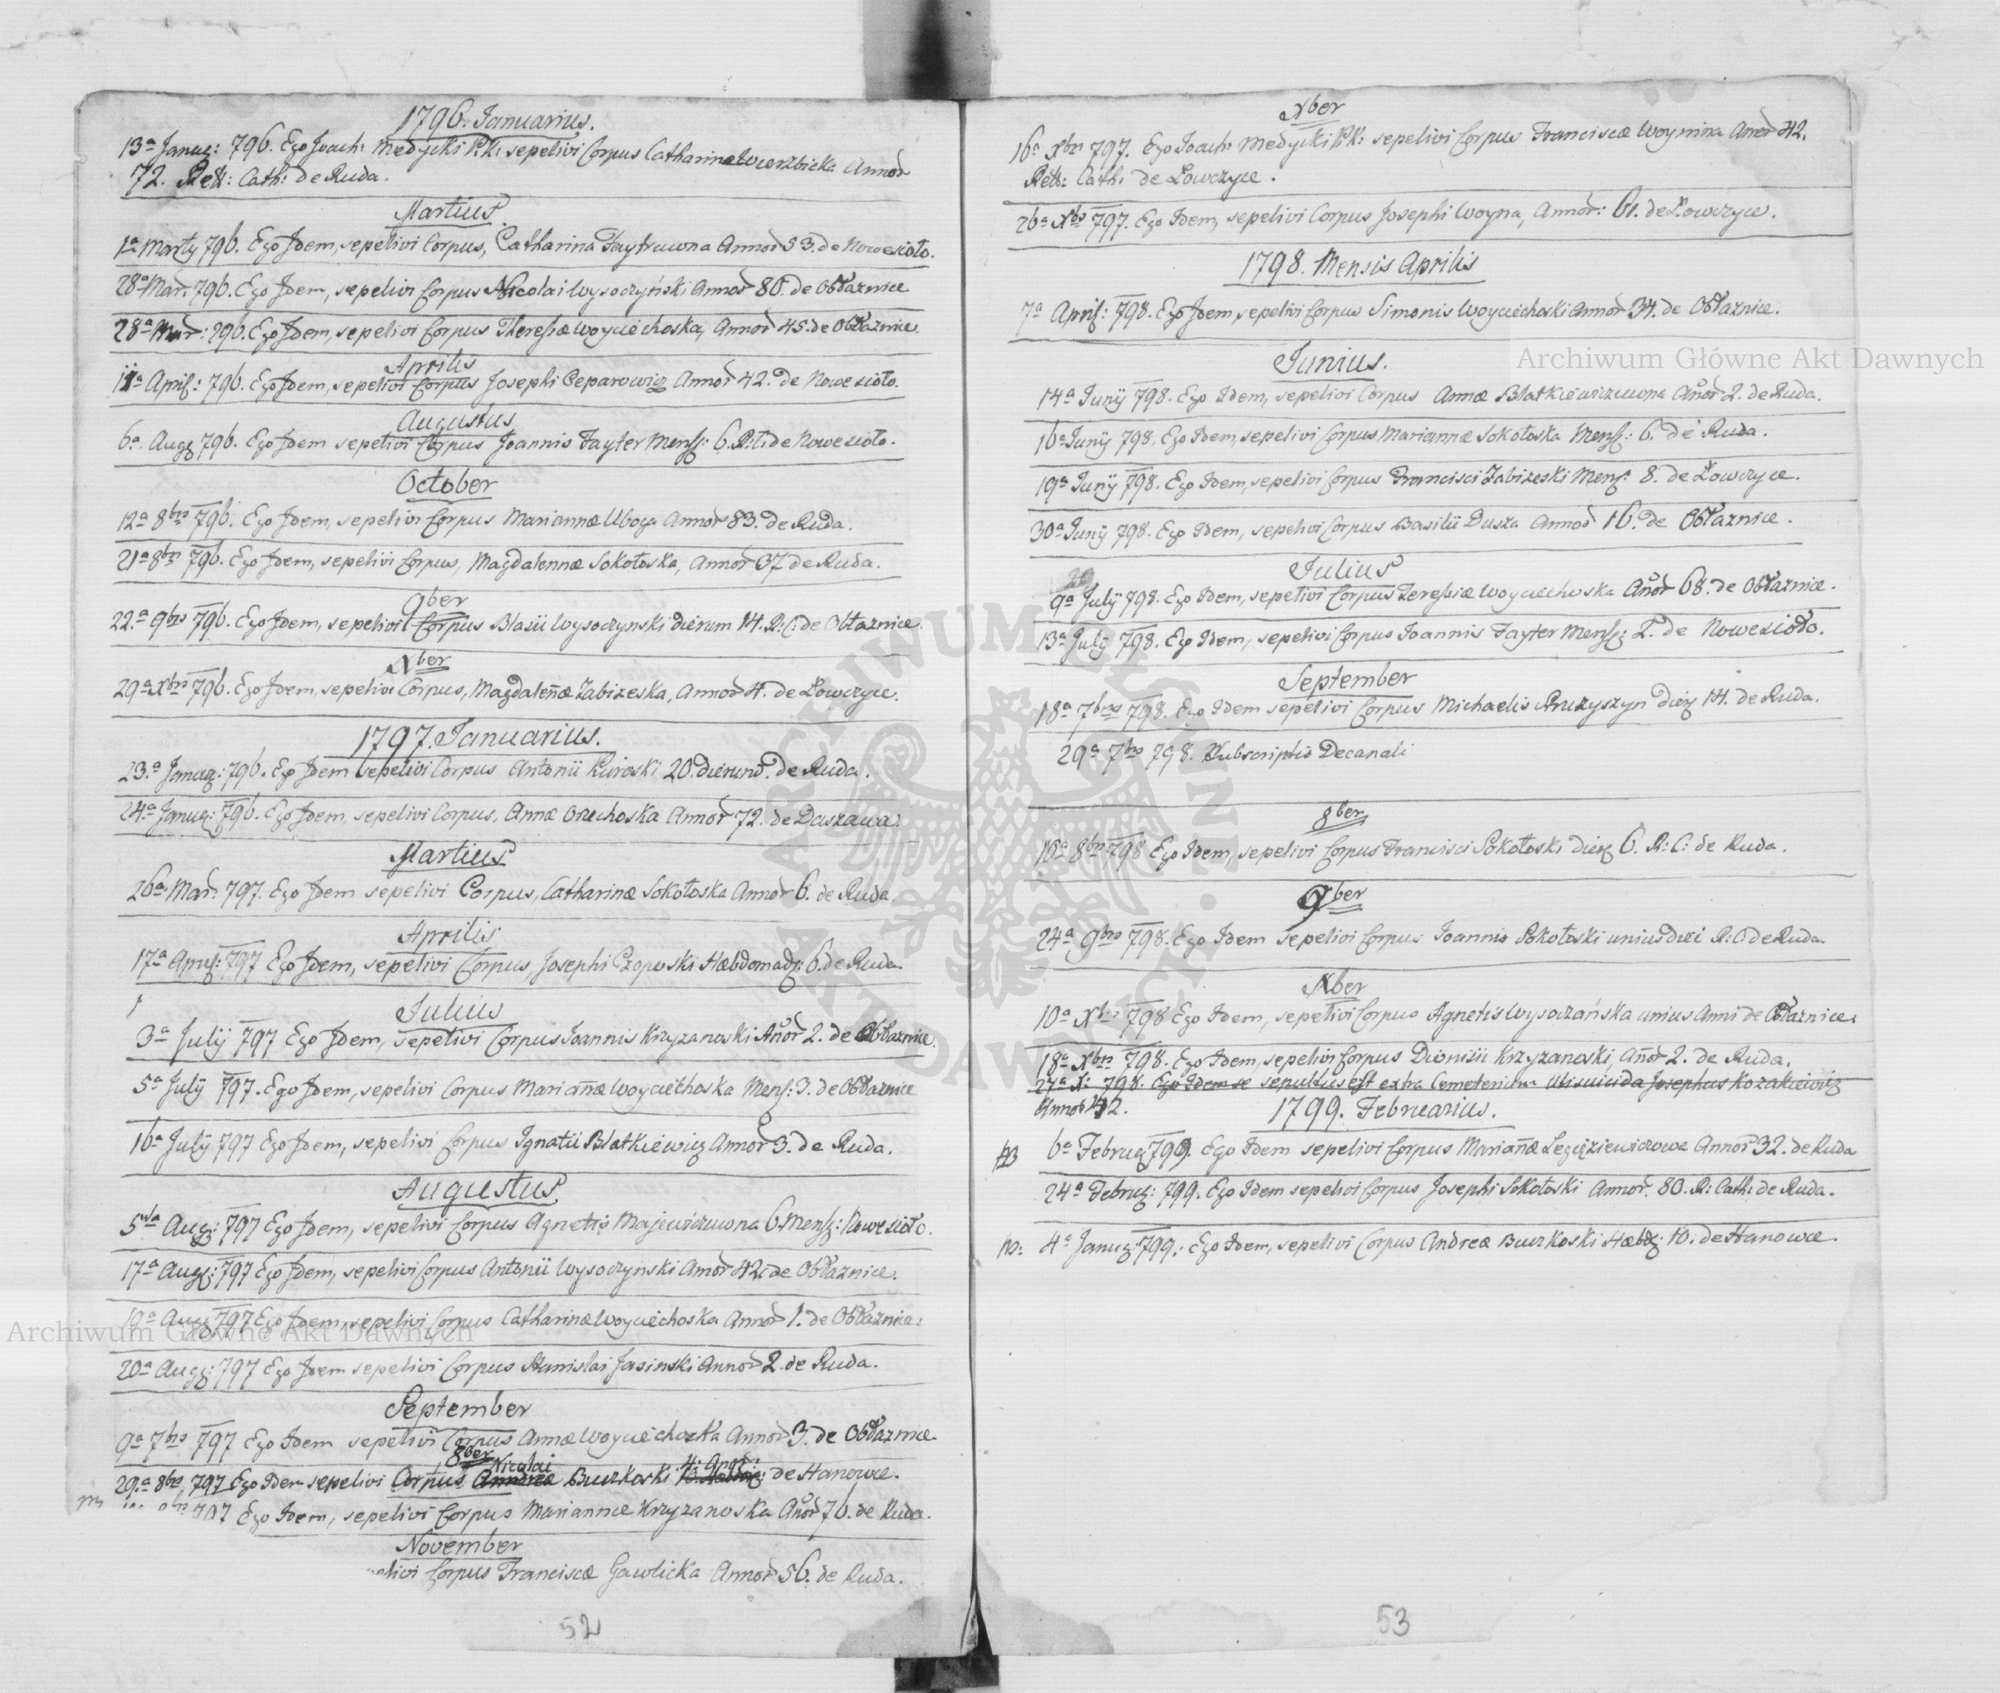 1796. Januarius.
13a Januar: 796. Ego Joach: Medycki P.K: sepelivi Corpus Catharinae Wierzbicka Annor
72. Rett: Cath: de Ruda.
Martius
1a Martÿ 796. Ego Idem, sepelivi Corpus, Catharina Faytruwna Annor 53. de Nowesioło.
28a Mar: 796. Ego Idem, sepelivi Corpus Nicolai Wysoczyński Annor 80. de Obłaznice
28a Mar: 796. Ego Idem, sepelivi Corpus Theressæ Woyciechoska, Annor 45. de Obłaznice.
Aprilis
11a April: 796. Ego Idem, sepelivi Corpus Josephi Ceparowicz Annor 42. de Nowesioło.
Augustus
6a. Aug 796. Ego Idem sepelivi Corpus Joannis Fayter Mens: 6. R.C. de Nowesioło.
October
12a 8bris 796. Ego Idem, sepelivi Corpus Mariannæ Uboga Annor 83. de Ruda.
21a 8bris 796. Ego Idem, sepelivi Corpus, Magdalennæ Sokołoska, Annor 37 de Ruda.
9ber
22.a 9bris 796. Ego Idem, sepelivi Corpus Blasii Wysoczynski dierum 14. R: C: de Obłaznice.
Xber
29a Xbris 796. Ego Idem, sepelivi Corpus, Magdaleñæ Zabizeska, Annor 4. de Łowczyce.
1797. Januarius.
23.a Januar: 796. Ego Idem sepelivi Corpus Antonii Kuroski 20. dierum. de Ruda.
24.a Januar: 796. Ego Idem, sepelivi Corpus, Annæ Orzechoska Annor 72. de Daszawa.
Martius
26a Mar: 797. Ego Idem sepelivi Corpus, Catharinæ Sokołoska Annor 6. de Ruda
Aprilis
17a April: 797 Ego Idem, sepelivi Corpus, Josephi Czoposki Hæbdomad: 6. de Ruda
Julius
3a Julÿ 797 Ego Idem, sepelivi Corpus Joannis Krzyzanoski Añor 2. de Obłaznice.
5a Julÿ 797. Ego Idem, sepelivi Corpus Mariañæ Woyciechoska Mens: 3. de Obłaznice
16a Julÿ 797 Ego Idem, sepelivi Corpus Ignatii Blatkiewicz Annor 3. de Ruda.
Augustus
5ta Aug: 797 Ego Idem, sepelivi Corpus Agnetis Majewiczuwna 6 Mens: Nowesioło.
17a Aug: 797 Ego Idem, sepelivi Corpus Antonii Wysoczynski Annor 42. de Obłaznice.
19a Aug 797 Ego Idem, sepelivi Corpus Catharinæ Woyciechoska Annor 1. de Obłaznice.
20a Aug: 797 Ego Idem sepelivi Corpus Stanislai Jasinski Annor 2 de Ruda.
September
9a 7bris 797 Ego Idem sepelivi Corpus Annæ Woyciechoska Annor 3. de Obłaznice
8ber Nicolai 4. Anor:
29.a 8bris 797 Ego Idem sepelivi Corpus Andreæ Buczkoski de Hanowce.
797 Ego Idem, sepelivi Corpus Mariannæ Krzyzanoska Añor 76. de Ruda.
November
Corpus Franciscæ Gawlicka Annor 56. de Ruda.
52
Xber
16a Xbris 797. Ego Joach: Medycki P.K: sepelivi Corpus Franciscæ Woynina Annor 42.
Rett: Cath: de Łowczyce.
26a Xbris 797. Ego Idem, sepelivi Corpus Josephi Woyna, Annor: 61. de Łowczyce.
1798. Mensis Aprilis
7a April: 798. Ego Idem, sepelivi Corpus Simonis Woyciechoski Annor 34. de Obłaznice.
Junius.
14a Junÿ 798. Ego Idem, sepelivi Corpus Annæ Blatkiewiczuwna Añor 2. de Ruda.
16a Junÿ 798. Ego Idem, sepelivi Corpus Mariannæ Sokołoska Mens: 6. de Ruda.
19a Junÿ 798. Ego Idem, sepelivi Corpus Francisci Zabizeski Mens: 8. de Łowczyce.
30a Junÿ 798. Ego Idem, sepelivi Corpus Basilii Dusza Annor 16. de Obłaznice.
Julius
9a Julÿ 798. Ego Idem, sepelivi Corpus Teressiæ Woyciechoska Añor 68. de Obłaznice.
13a Julÿ 798. Ego Idem, sepelivi Corpus Joannis Fayter Mens: 2. de Nowesioło.
September
18a 7bris 798. Ego Idem sepelivi Corpus Michaelis Pruzyszyn dier 14. de Ruda.
29a 7bris 798. Subscriptio Decanali
8ber
16a 8bris 798 Ego Idem, sepelivi Corpus Francisci Sokołoski dier 6. R: C: de Ruda.
9ber
24a 9bris 798. Ego Idem sepelivi Corpus Joannis Sokołoski unius diei R: C: de Ruda
Xber
10a Xbris 798 Ego Idem, sepelivi Corpus Agnetis Wysoczańska unius Anni de Obłaznice.
18a Xbris 798. Ego Idem, sepelivi Corpus Dionisii Krzyzanoski Añor 2. de Ruda.
27a X: 798. Ego Idem sepultus est extra Cemeterium Josephus Kozakiewicz
Annor 42.
1799. Februarius.
6a Februar 799. Ego Idem sepelivi Corpus Mariañæ Legęziewiczowa Annor 32. de Ruda
24a Februar: 799. Ego Idem sepelivi Corpus Josephi Sokołoski Annor. 80. R: Cath: de Ruda.
4a Januar 799. Ego Idem, sepelivi Corpus Andreæ Buczkoski Hæbd: 10. de Hanowce.
53
Archiwum Główne Akt Dawnych
Archiwum Główne Akt Dawnych
ARCHIWUM GŁÓWNE AKT DAWNYCH